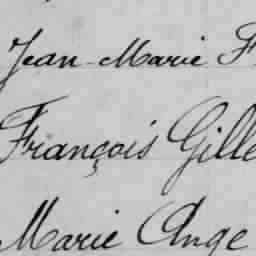 Jean-Marie F
François Gille
Marie Ange